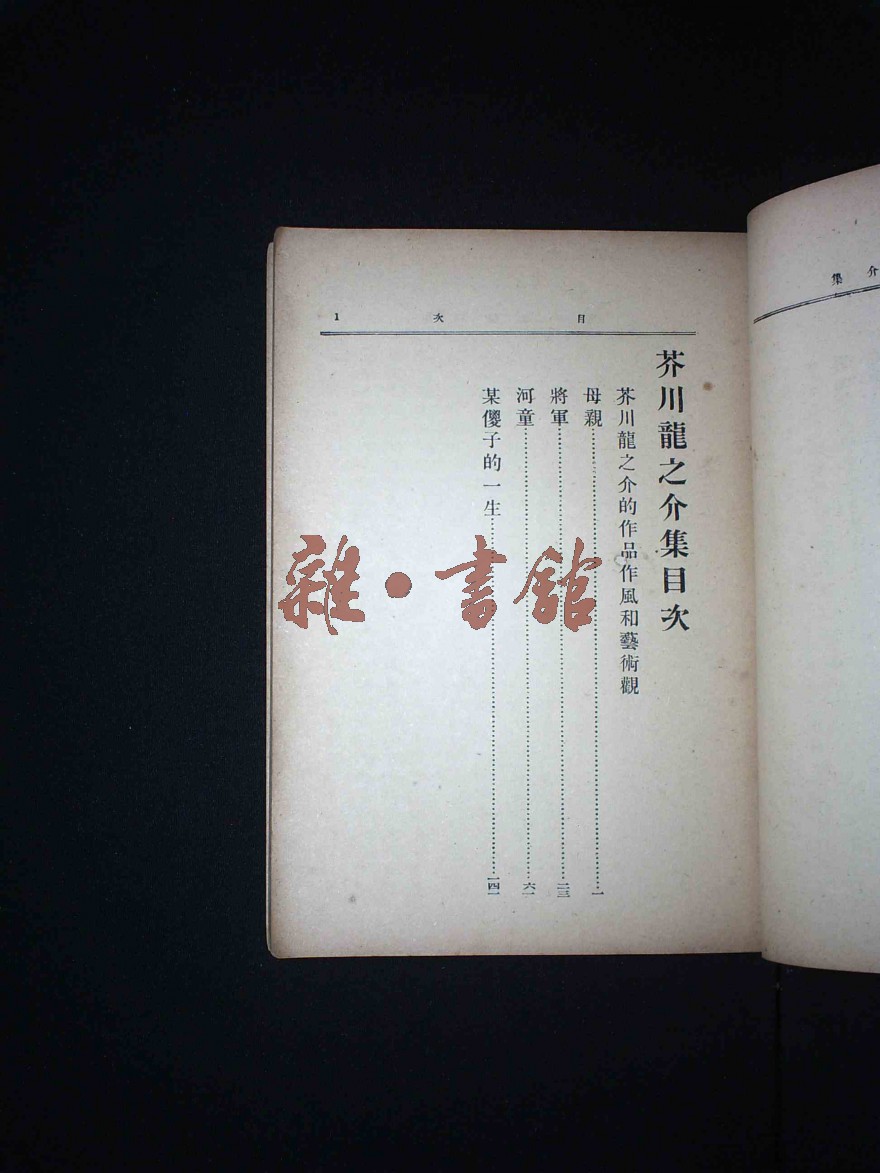 介集
目次 1
芥川龍之介集目次
芥川龍之介的作品作風和藝術觀
母親……一
將軍……二三
河童……六一
某傻子的一生……一四一
雜·書館